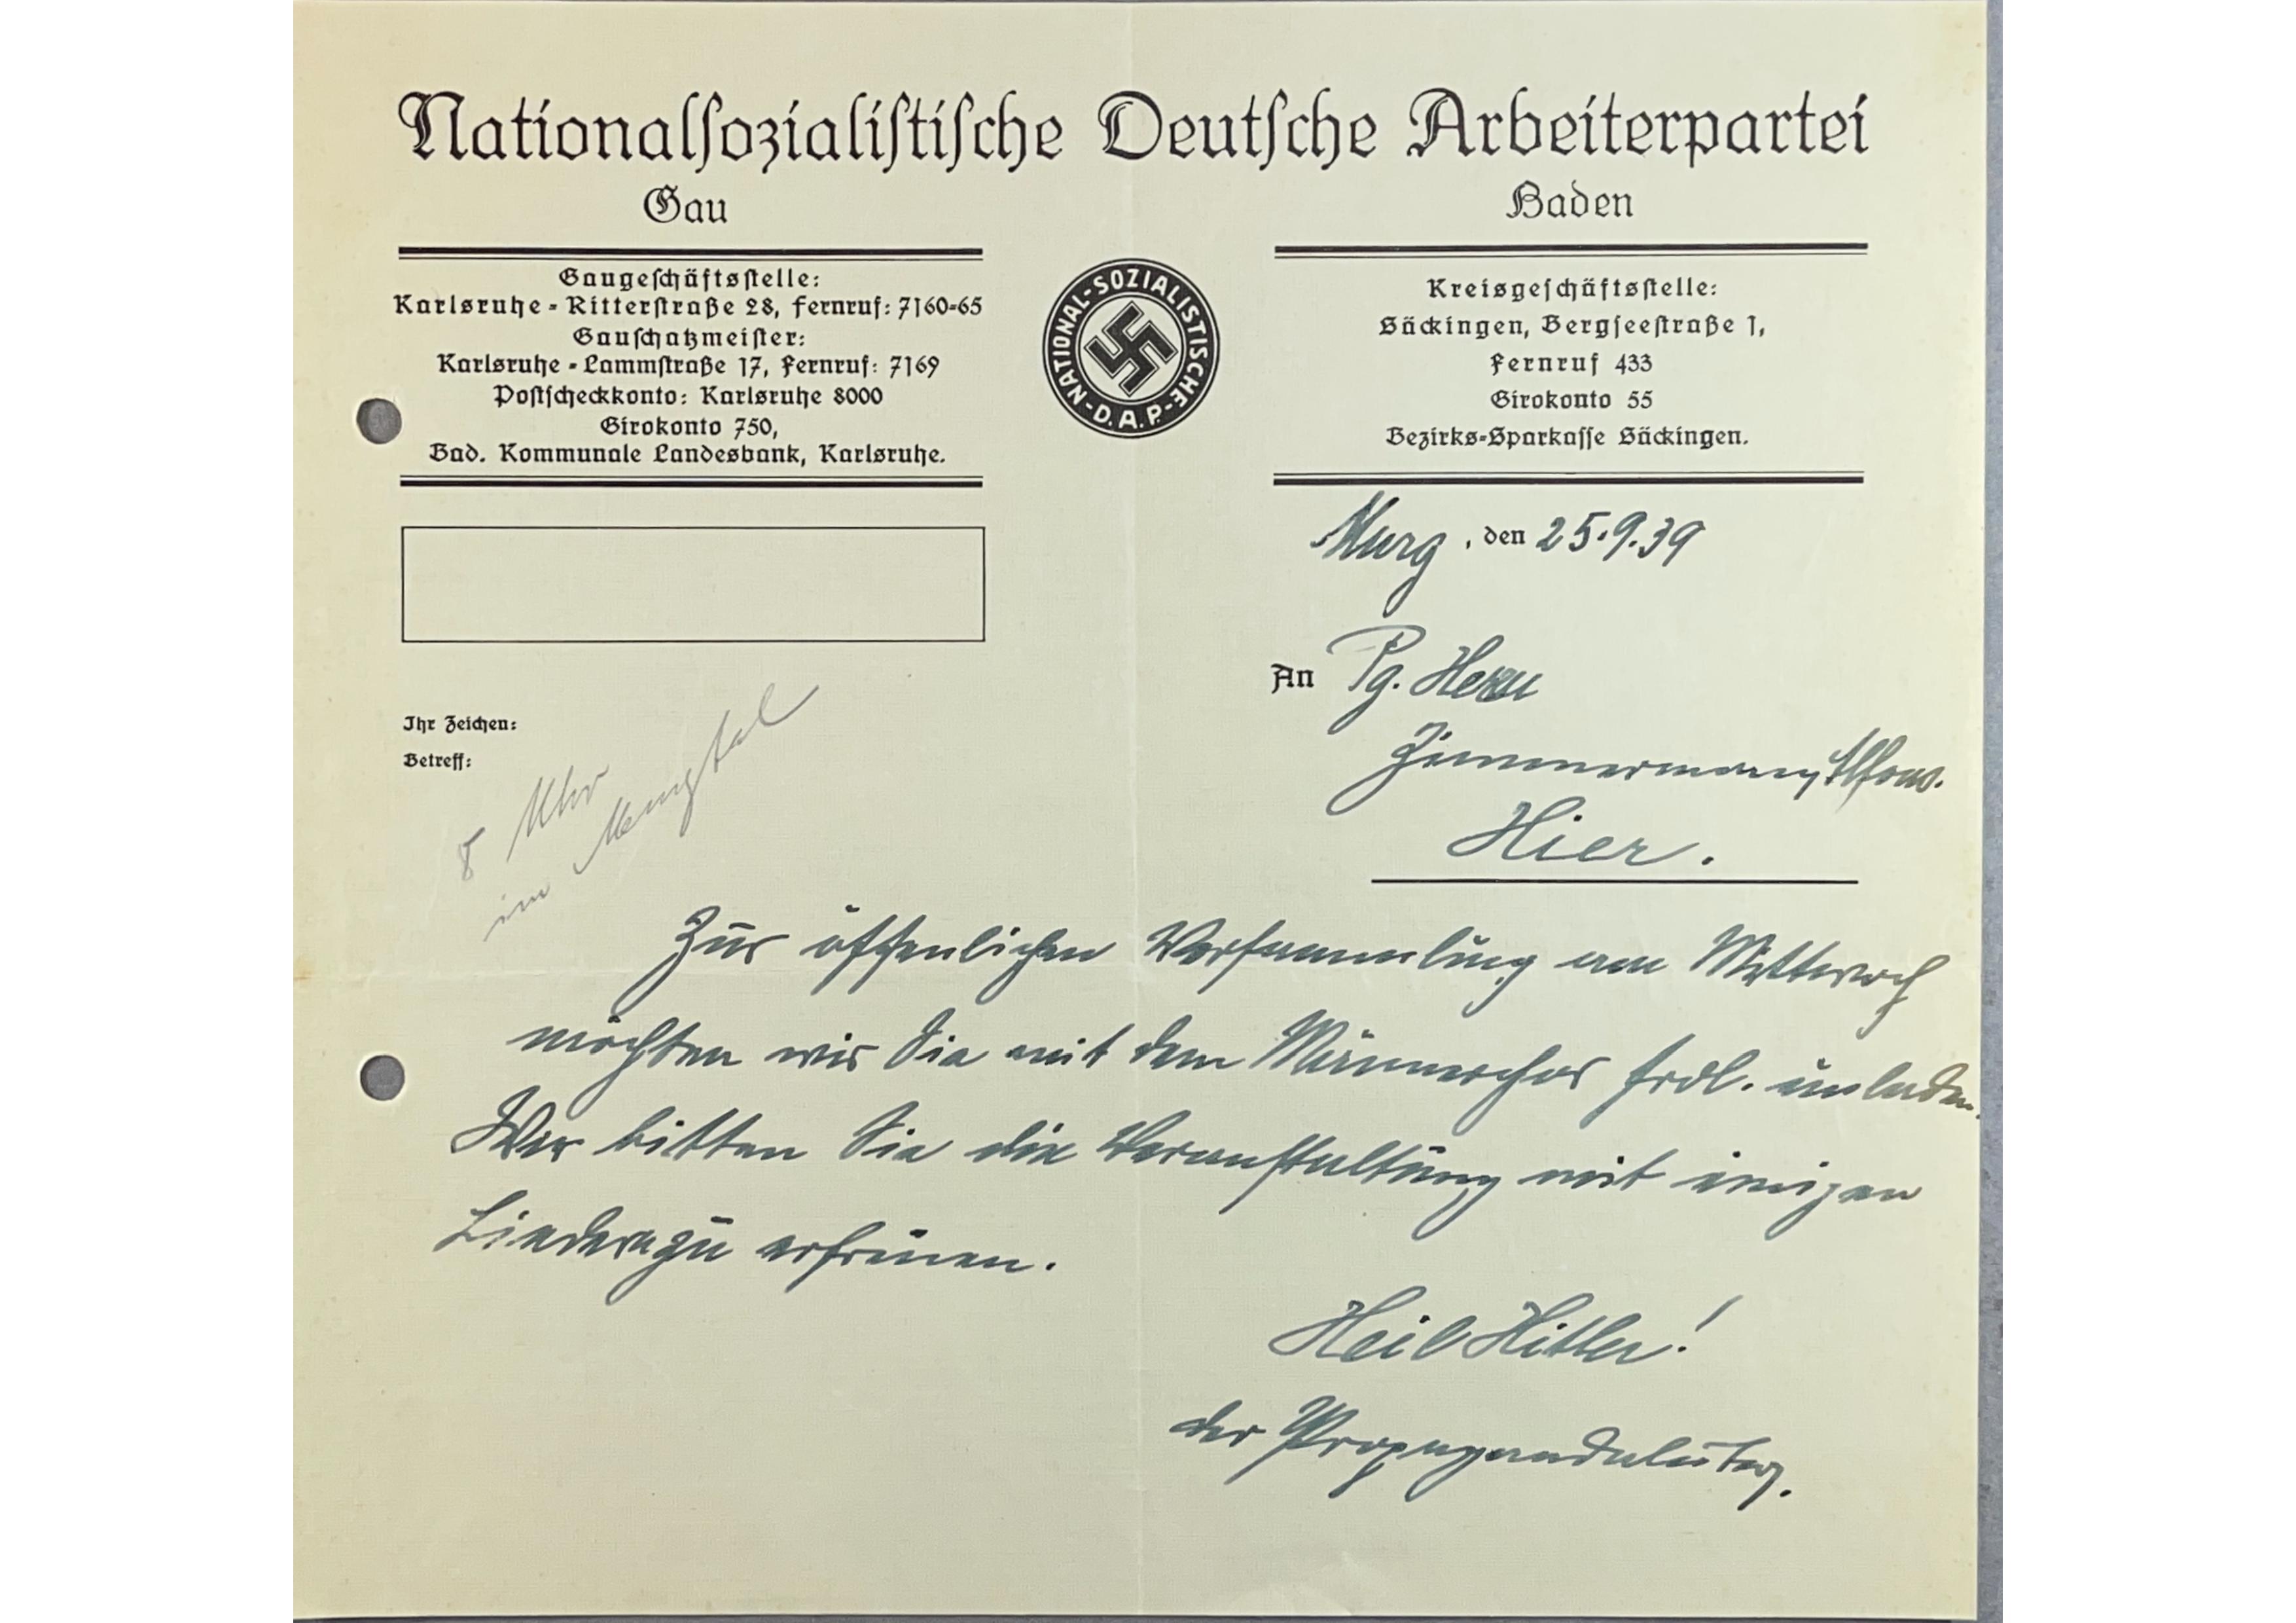 Nationalsozialistische Deutsche Arbeiterpartei
Gau Baden
Gaugeschäftsstelle:
Karlsruhe - Ritterstraße 28, Fernruf: 7160-65
Gauschatzmeister:
Karlsruhe - Lammstraße 17, Fernruf: 7169
Postscheckkonto: Karlsruhe 8000
Girokonto 750,
Bad. Kommunale Landesbank, Karlsruhe.
NATIONAL-SOZIALISTISCHE-D.A.P.-
Kreisgeschäftsstelle:
Säckingen, Bergseestraße 1,
Fernruf 433
Girokonto 55
Bezirks-Sparkasse Säckingen.
Murg, den 25.9.39
An Pg. Herrn
Zimmermann Alfons.
Hier.
Ihr Zeichen:
Betreff:
8 Uhr
im
Zur öffenlichen Versammlung am Mittwoch
möchten wir Sie mit dem Männerchor frdl. einladen.
Wir bitten Sie die Veranstaltung mit einigen
Liedern zu erfreuen.
Heil Hitler!
der Propagandaleiter.